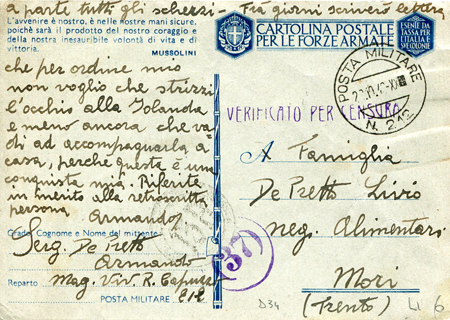 a parte tutti gli scherzi - Fra giorni scriverò lettera
L'avvenire è nostro, è nelle nostre mani sicure,
poichè sarà il prodotto del nostro coraggio e
della nostra inesauribile volontà di vita e di
vittoria.
MUSSOLINI
che per ordine mio
non voglio che strizzi
l'occhio alla Iolanda
e meno ancora che va-
di ad accompagnarla a
casa, perché questa è una
conquista mia. Riferita
in merito alla retroscritta
persona
Armando
Grado, Cognome e Nome del mittente
Serg. De Pretto
Armando
Reparto Mag. Viv. R. Capuzzo
POSTA MILITARE 212
CARTOLINA POSTALE
PER LE FORZE ARMATE
ESENTE DA
TASSA PER
L'ITALIA E
SUE COLONIE
POSTA MILITARE
N. 212
VERIFICATO PER CENSURA
A Famiglia
De Pretto Livio
neg. Alimentari
Mori
(Trento)
37
D34
6